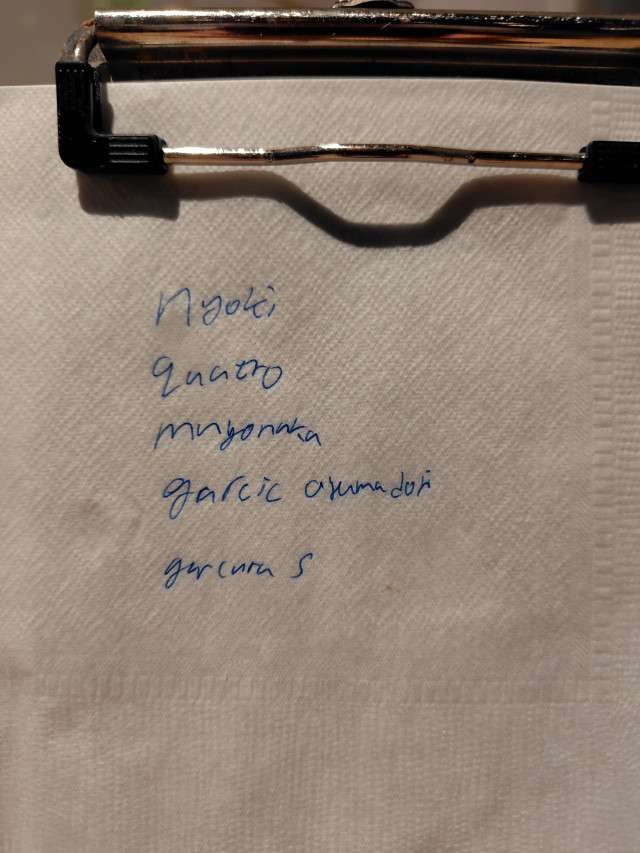 nyoki
quatro
muyonaka
garcic asumadori
garcura S